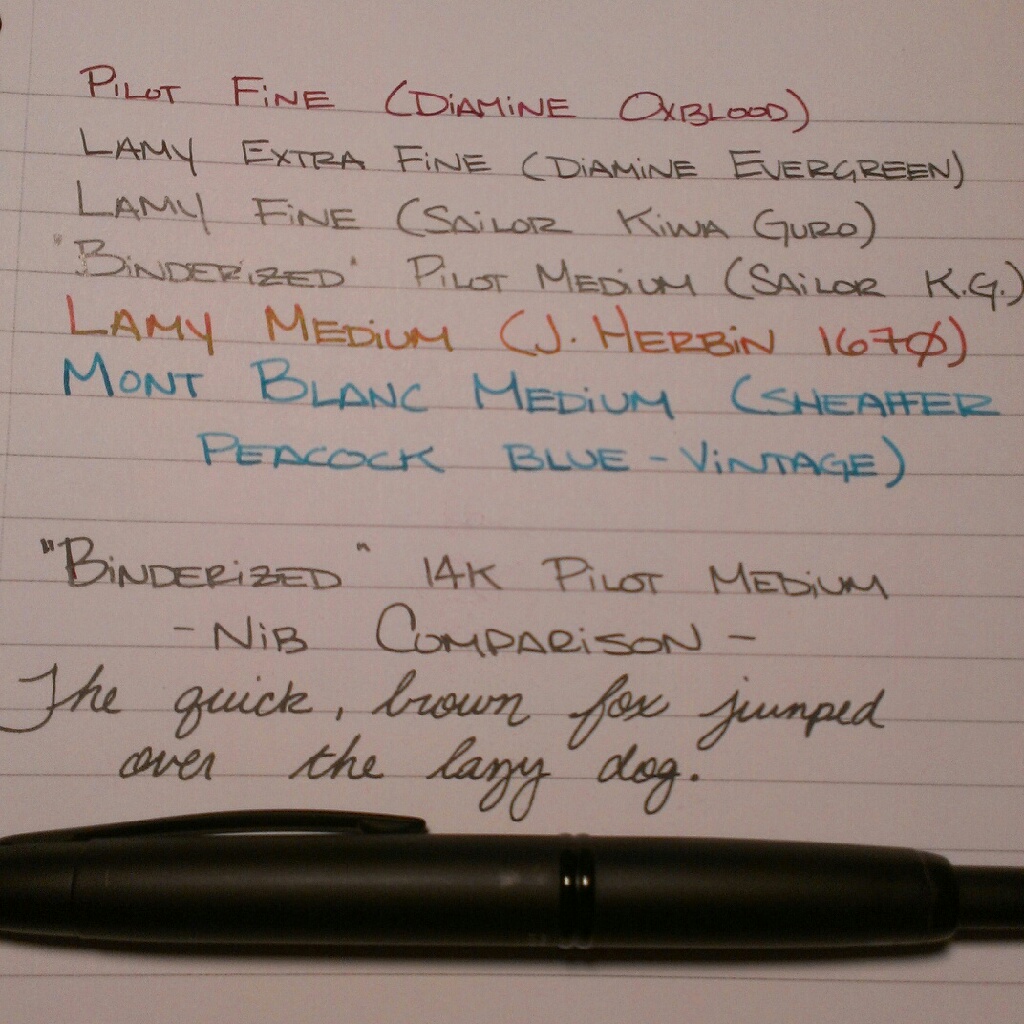 Pilot Fine (Diamine Oxblood)
Lamy Extra Fine (Diamine Evergreen)
Lamy Fine (Sailor Kiwa Guro)
"Binderized" Pilot Medium (Sailor K.G.)
Lamy Medium (J. Herbin 1670)
Mont Blanc Medium (Sheaffer
Peacock Blue - Vintage)
"Binderized" 14K Pilot Medium
- Nib Comparison -
The quick, brown fox jumped
over the lazy dog.